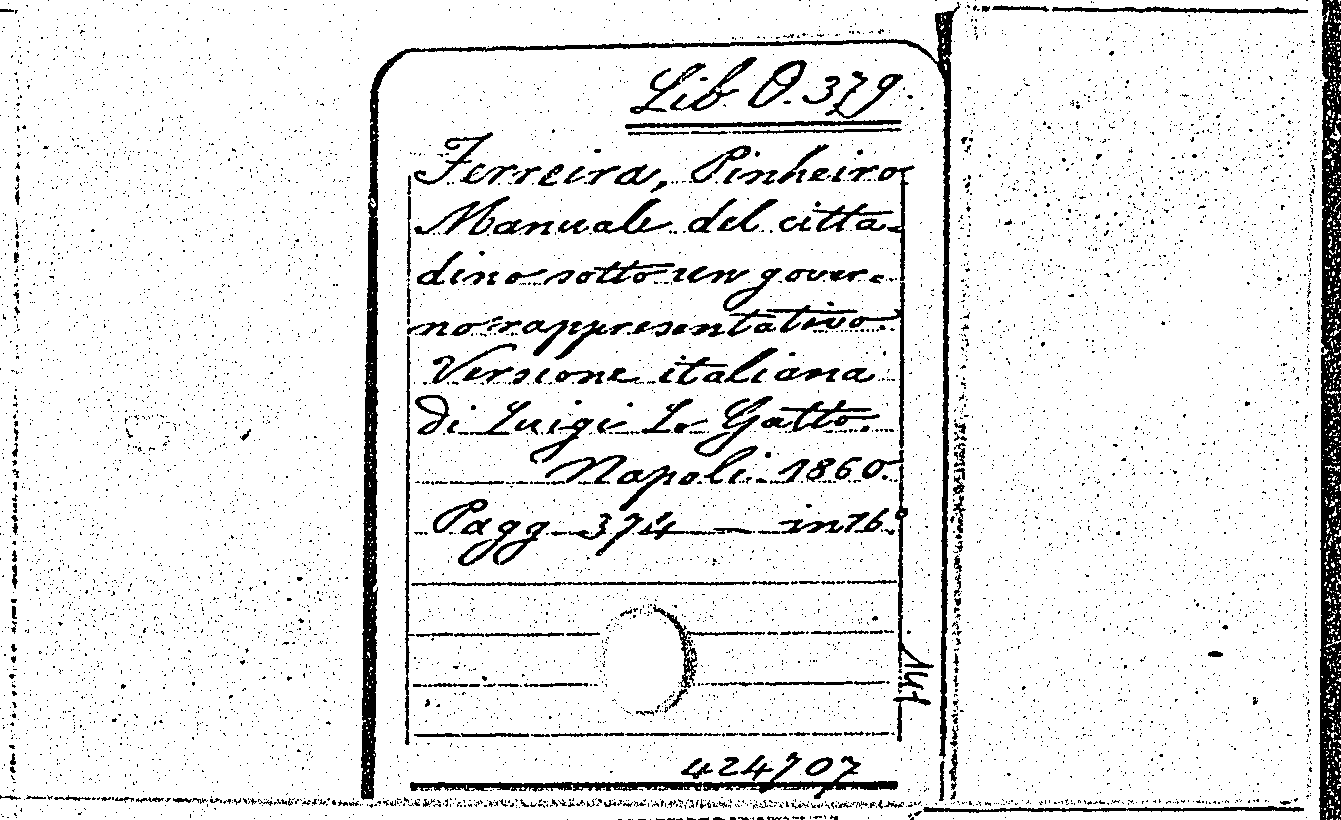 Lib O.379.
Ferreira, Pinheiro
Manuale del citta-
dino sotto un gover-
no rappresentativo.
Versione italiana
di Luigi Lo Gatto.
Napoli. 1860.
Pagg 374 — in 16.°
424707